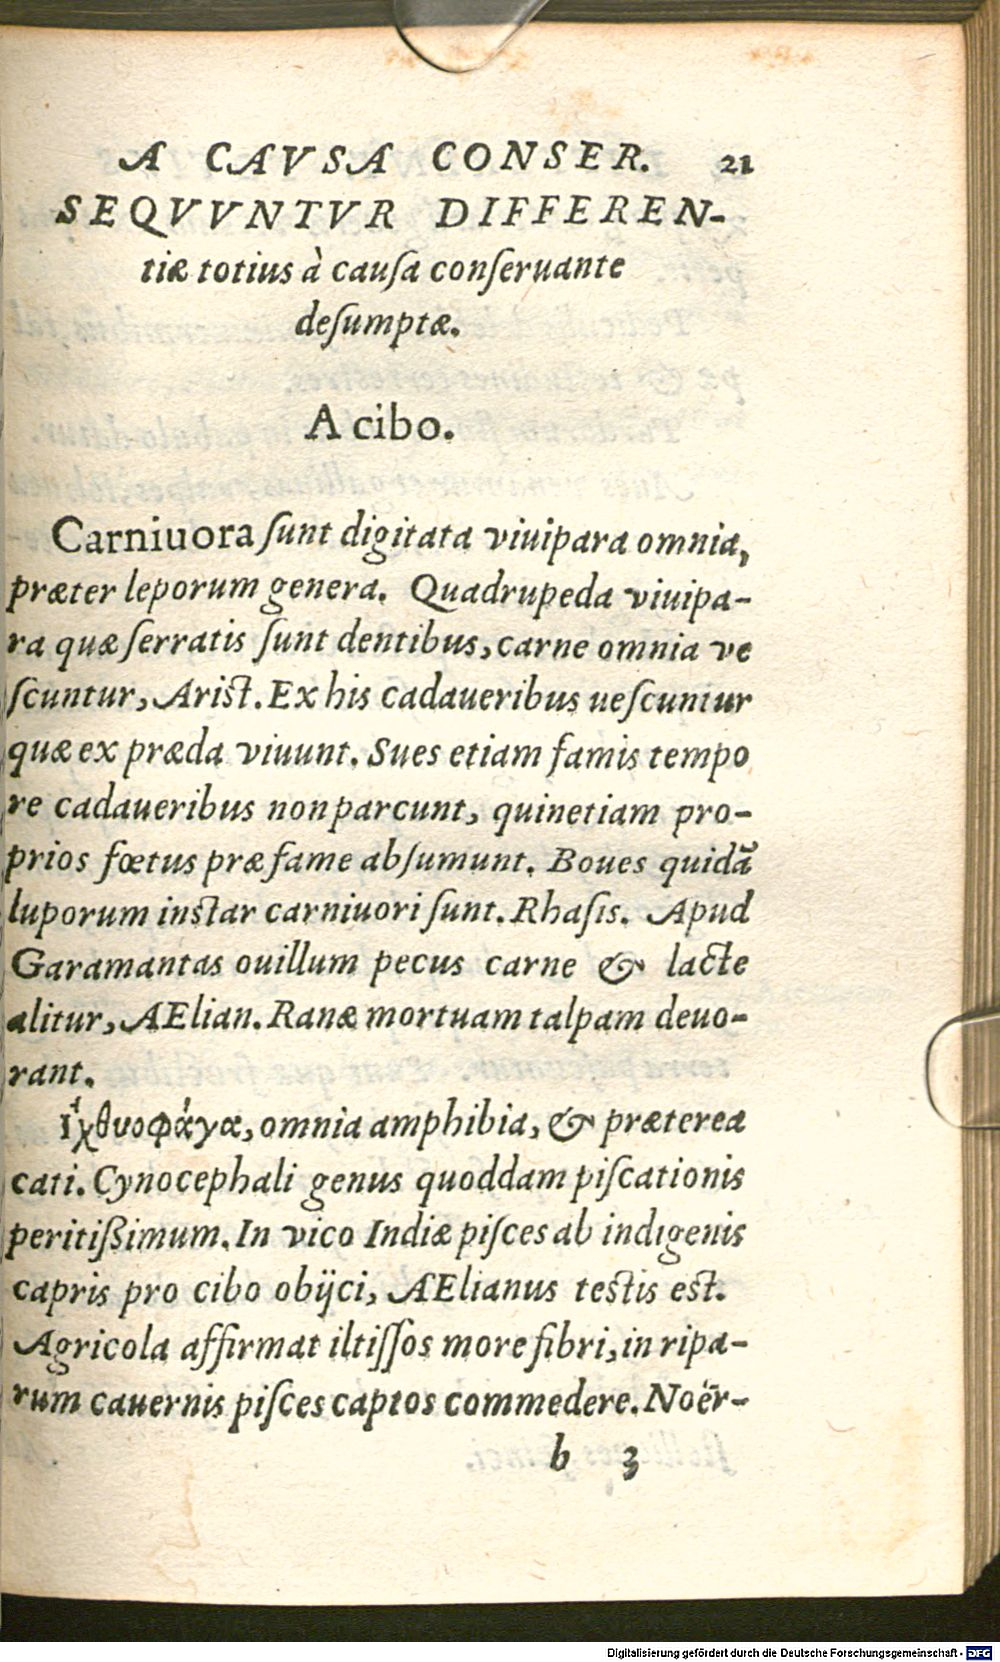 A CAVSA CONSER. 21
SEQVVNTVR DIFFEREN-
tiæ totius à causa conseruante
desumptæ.
A cibo.
Carniuora sunt digitata viuipara omnia,
præter leporum genera. Quadrupeda viuipa-
ra quæ serratis sunt dentibus, carne omnia ve
scuntur, Arist. Ex his cadaueribus uescuntur
quæ ex præda viuunt. Sues etiam famis tempo
re cadaueribus non parcunt, quinetiam pro-
prios fœtus præ fame absumunt. Boues quidã
luporum instar carniuori sunt. Rhasis. Apud
Garamantas ouillum pecus carne & lacte
alitur, AElian. Ranæ mortuam talpam deuo-
rant.
Ἰχθυοφάγα, omnia amphibia, & præterea
cati. Cynocephali genus quoddam piscationis
peritißimum. In vico Indiæ pisces ab indigenis
capris pro cibo obijci, AElianus testis est.
Agricola affirmat iltissos more fibri, in ripa-
rum cauernis pisces captos commedere. Noër-
b 3
Digitalisierung gefördert durch die Deutsche Forschungsgemeinschaft - DFG